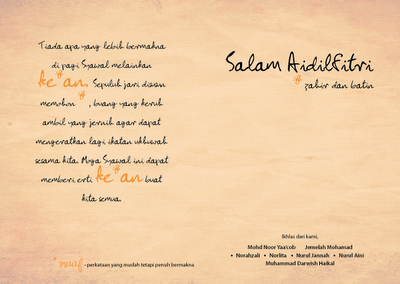 Tiada apa yang lebih bermakna
di pagi Syawal melainkan
ke*an. Sepuluh jari disusun
memohon *, buang yang keruh
ambil yang jernih agar dapat
mengeratkan lagi ikatan ukhuwah
sesama kita. Moga Syawal ini dapat
memberi erti ke*an buat
kita semua.
*maaf - perkataan yang mudah tetapi penuh bermakna
Salam Aidilfitri
*zahir dan batin
Ikhlas dari kami,
Mohd Noor Yaa'cob Jemselah Mohamad
• Norahzali • Norlita • Nurul Jannah • Nurul Aini
Muhammad Darwish Haikal